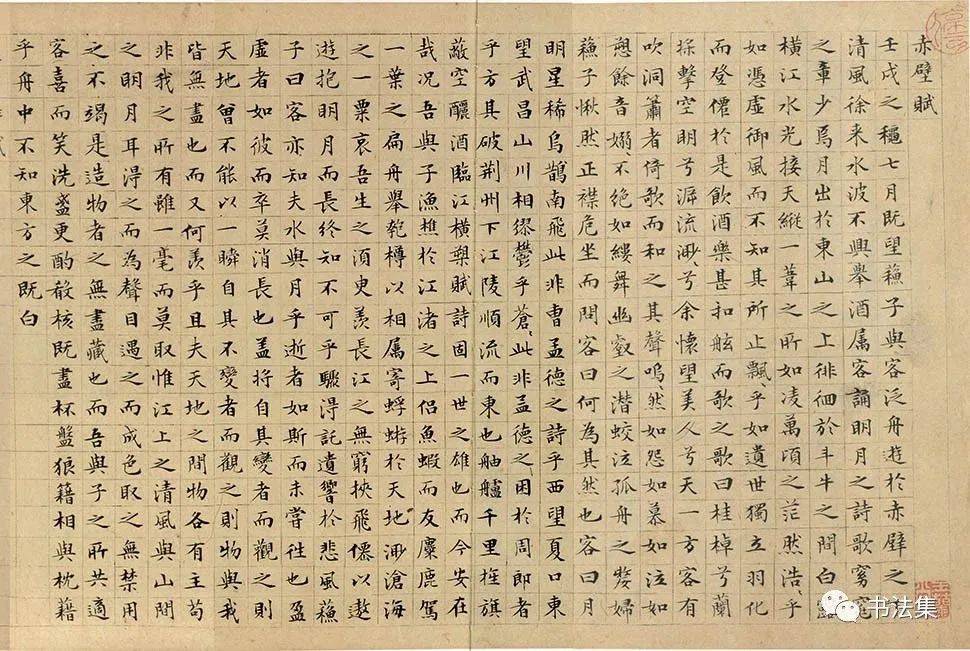 赤壁賦
壬戌之穐七月既望蘓子與客泛舟遊於赤壁之下
清風徐来水波不興舉酒属客誦明月之詩歌窈窕
之章少焉月出於東山之上徘徊於斗牛之間白露
横江水光接天縱一葦之所如凌萬頃之茫然浩〻乎
如憑虛御風而不知其所止飄〻乎如遺世獨立羽化
而登僊於是飲酒樂甚扣舷而歌之歌曰桂棹兮蘭
槳擊空明兮泝流渺兮余懷望美人兮天一方客有
吹洞簫者倚歌而和之其聲嗚〻然如怨如慕如泣如
愬餘音嫋〻不絕如縷舞幽壑之潛蛟泣孤舟之嫠婦
蘓子愀然正襟危坐而問客曰何為其然也客曰月
明星稀烏鵲南飛此非曹孟德之詩乎西望夏口東
望武昌山川相繆鬱乎蒼〻此非孟德之困於周郎者
乎方其破荆州下江陵順流而東也舳艫千里旌旗
蔽空釃酒臨江横槊賦詩固一世之雄也而今安在
哉况吾與子漁樵於江渚之上侣魚蝦而友麋鹿駕
一葉之扁舟舉匏樽以相属寄蜉蝣於天地渺滄海
之一粟哀吾生之須臾羨長江之無窮挾飛僊以遨
遊抱明月而長終知不可乎驟得託遺響於悲風蘓
子曰客亦知夫水與月乎逝者如斯而未嘗往也盈
虛者如彼而卒莫消長也盖將自其變者而觀之則
天地曾不能以一瞬自其不變者而觀之則物與我
皆無盡也而又何羨乎且夫天地之間物各有主苟
非我之所有雖一毫而莫取惟江上之清風與山間
之明月耳得之而為聲目遇之而成色取之無禁用
之不竭是造物者之無盡藏也而吾與子之所共適
客喜而笑洗盞更酌殽核既盡杯盤狼籍相與枕藉
乎舟中不知東方之既白
书法集